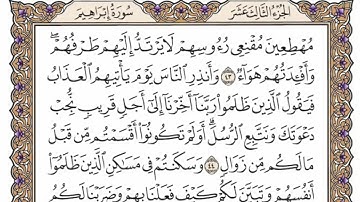 الجزء الثالث عشر سورة إبراهيم
مُهْطِعِينَ مُقْنِعِى رُءُوسِهِمْ لَا يَرْتَدُّ إِلَيْهِمْ طَرْفُهُمْ ۖ
وَأَفْـِٔدَتُهُمْ هَوَآءٌ ﴿٤٣﴾ وَأَنذِرِ ٱلنَّاسَ يَوْمَ يَأْتِيهِمُ ٱلْعَذَابُ
فَيَقُولُ ٱلَّذِينَ ظَلَمُوا۟ رَبَّنَآ أَخِّرْنَآ إِلَىٰٓ أَجَلٍ قَرِيبٍ نُّجِبْ
دَعْوَتَكَ وَنَتَّبِعِ ٱلرُّسُلَ ۗ أَوَلَمْ تَكُونُوٓا۟ أَقْسَمْتُم مِّن قَبْلُ
مَا لَكُم مِّن زَوَالٍ ﴿٤٤﴾ وَسَكَنتُمْ فِى مَسَٰكِنِ ٱلَّذِينَ ظَلَمُوٓا۟
أَنفُسَهُمْ وَتَبَيَّنَ لَكُمْ كَيْفَ فَعَلْنَا بِهِمْ وَضَرَبْنَا لَكُمُ